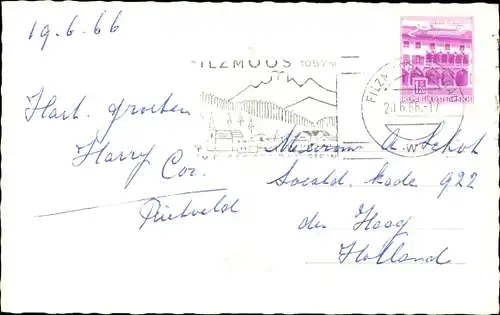 19.6.66
FILZMOOS 1057m
FILZMOOS
20.6.66.-17
REPUBLIK ÖSTERREICH
Hart. groeten
Harry
Cor.
Rietveld
Mevrouw A. Schot
Soestd. kade 922
den Haag
Holland